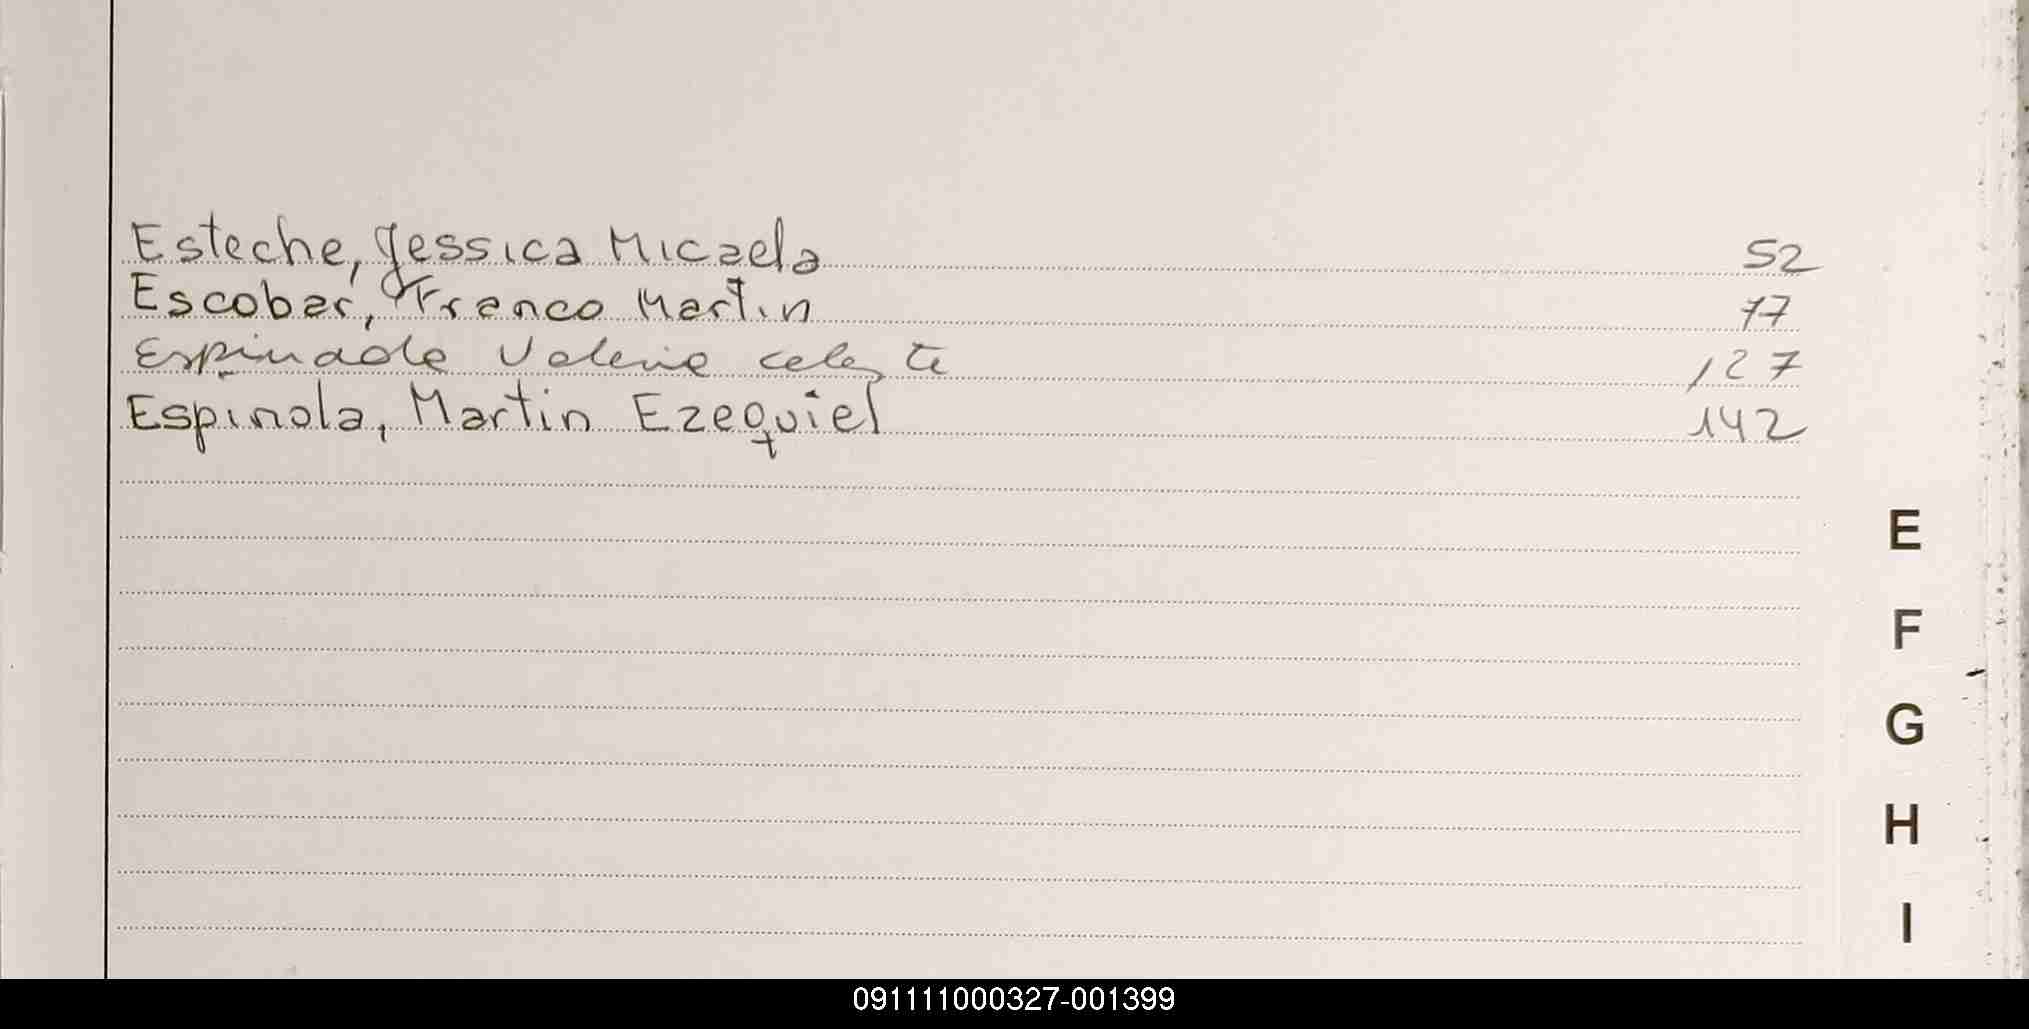 Esteche, Jessica Micaela 52
Escobar, Franco Martin 77
Espindola Valeria celeste 127
Espinola, Martin Ezequiel 142
E
F
G
H
I
091111000327-001399